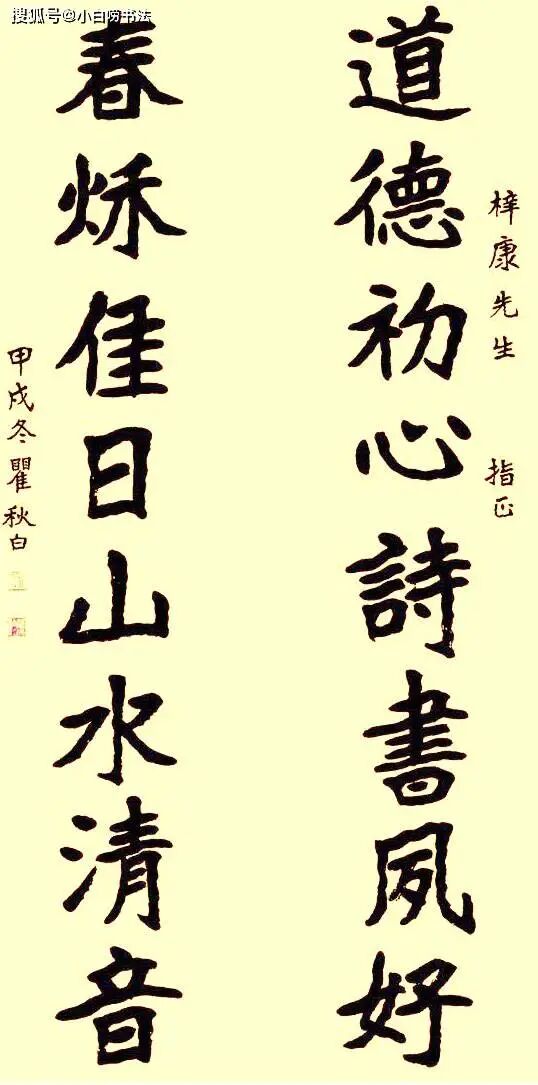 搜狐号@小白唠书法
道德初心詩書夙好
梓康先生 指正
春秌佳日山水清音
甲戌冬瞿秋白